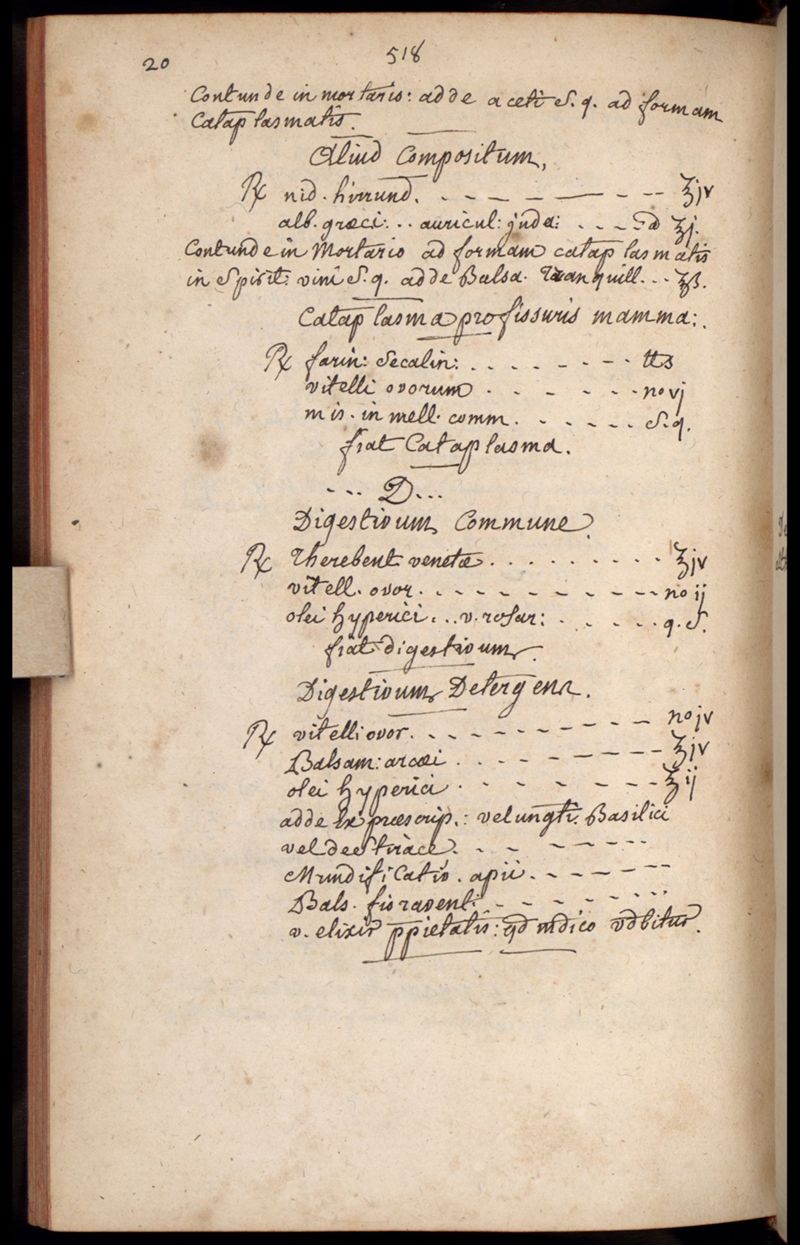 20
518
Contunde in mortariis: adde aceti S. q. ad formam
Cataplasmatis.
Aliud Compositum,
℞ nid. hirund. ℥jv
alb. græci: .. auricul: judæ: ... ā ℥j.
Contunde in Mortario ad formam cataplasmatis
in Spirit: vini S. q. adde Balsa. Tranquill... ℥ß.
Cataplasma pro fissuris mammæ:.
℞ farin: Secalin: ........
vitelli ovorum ...... no vj
mis. in mell. comm. ...... S. q.
fiat Cataplasma.
... D...
Digestivum Commune.
℞ Therebent venetæ ......... ℥jv
vitell. ovor. .......... no ij
olei hyperici: .. v. rosar: ...... q. S.
fiat digestivum.
Digestivum Detergens.
℞ vitelli ovor. ......... no jv
Balsam: arcæi ........ ℥jv
olei hyperici ....... ℥ij
adde præscrip.: vel ungti. Basilici
vel de Stirace. ......
Mundificatio. apii. ......
Bals. fioraventi .......
v. elixir ppietatis: qd mdico vdbitur.